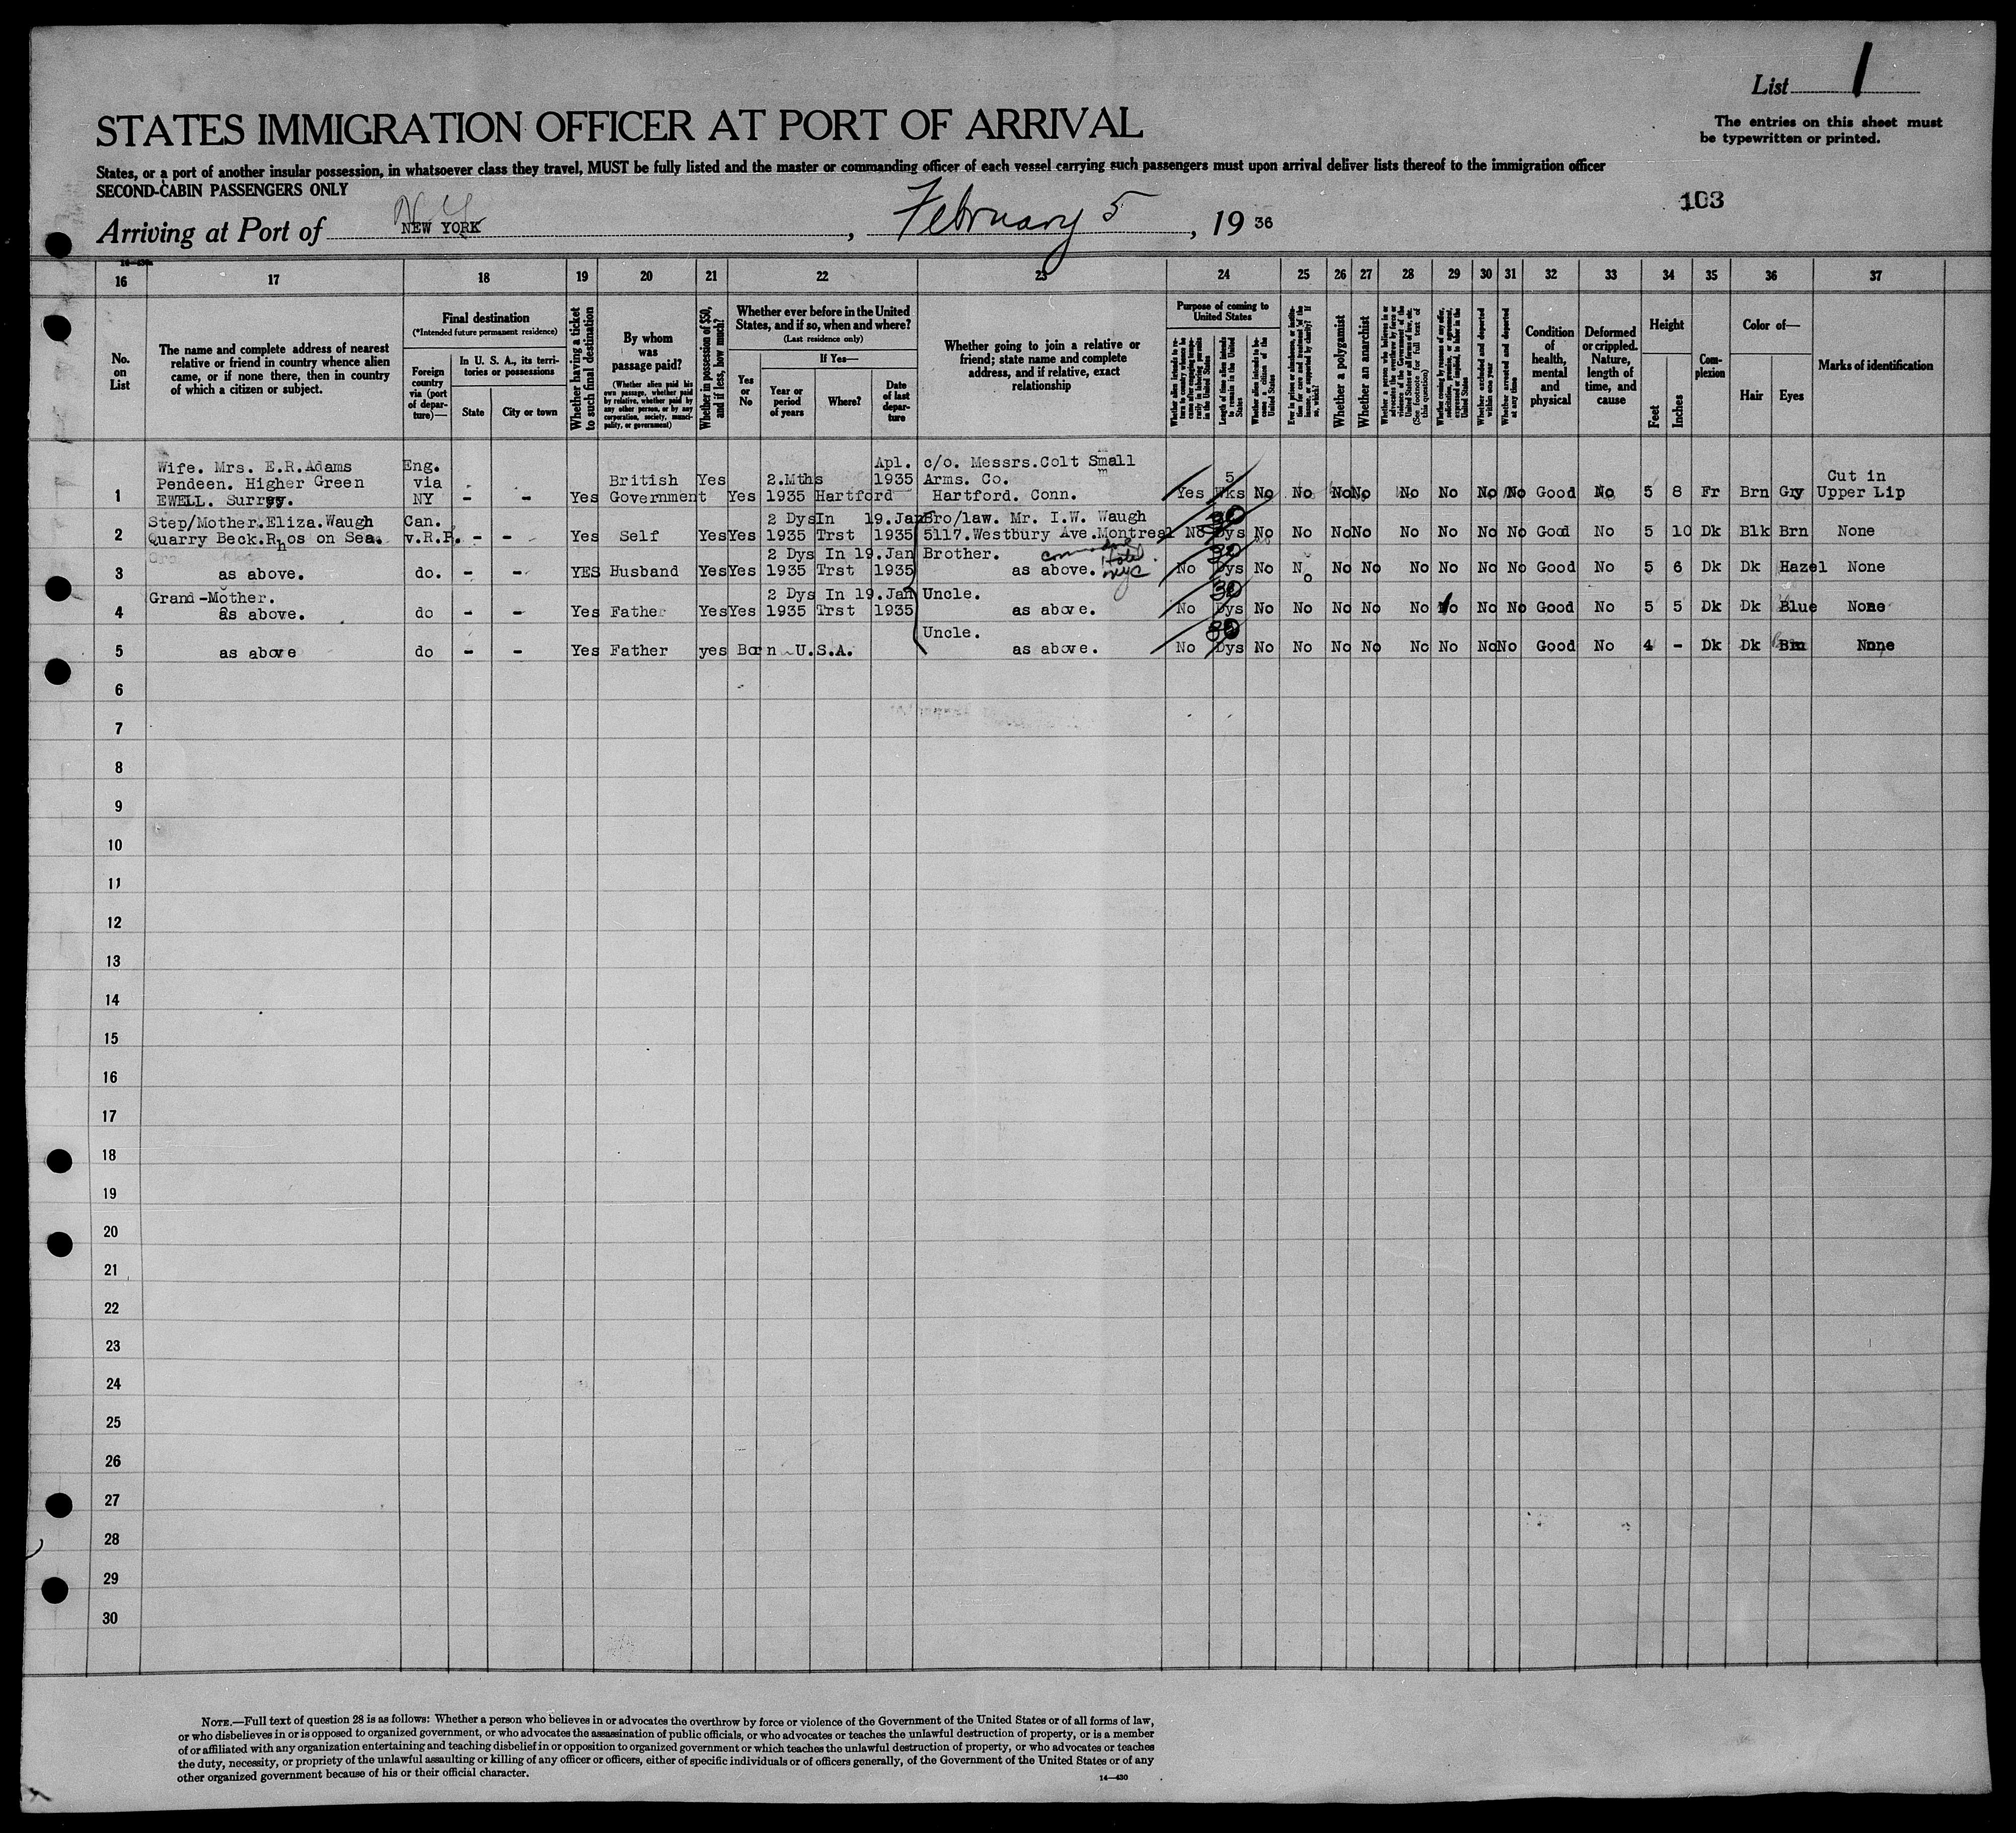 List 1
The entries on this sheet must
be typewritten or printed.
STATES IMMIGRATION OFFICER AT PORT OF ARRIVAL
States, or a port of another insular possession, in whatsoever class they travel, MUST be fully listed and the master or commanding officer of each vessel carrying such passengers must upon arrival deliver lists thereof to the immigration officer
SECOND-CABIN PASSENGERS ONLY
103
NY
Arriving at Port of NEW YORK, February 5, 19 36
16 17 18 19 20 21 22 23 24 25 26 27 28 29 30 31 32 33 34 35 36 37
No.
on
List
The name and complete address of nearest
relative or friend in country whence alien
came, or if none there, then in country
of which a citizen or subject.
Final destination
(*Intended future permanent residence)
Foreign
country
via (port
of depar-
ture)—
In U. S. A., its terri-
tories or possessions
State
City or town
Whether having a ticket
to such final destination
By whom
was
passage paid?
(Whether alien paid his
own passage, whether paid
by relative, whether paid by
any other person, or by any
corporation, society, munici-
pality, or government)
Whether in possession of $50,
and if less, how much?
Whether ever before in the United
States, and if so, when and where?
(Last residence only)
Yes
or
No
If Yes—
Year or
period
of years
Where?
Date
of last
depar-
ture
Whether going to join a relative or
friend; state name and complete
address, and if relative, exact
relationship
Purpose of coming to
United States
Length of time alien intends
to remain in the United
States
Whether alien intends to be-
come a citizen of the
United States
Whether a polygamist
Whether an anarchist
Whether excluded and deported
within one year
Whether arrested and deported
at any time
Condition
of
health,
mental
and
physical
Deformed
or crippled.
Nature,
length of
time, and
cause
Height
Feet
Inches
Com-
plexion
Color of—
Hair
Eyes
Marks of identification
Wife. Mrs. E.R.Adams Eng. Apl. c/o. Messrs.Colt Small
Pendeen. Higher Green via British Yes 2.Mths 1935 Arms. Co. 5 Cut in
1 EWELL. Surrey. NY - - Yes Government Yes 1935 Hartford Hartford. Conn. Yes Wks No No No No No No No No Good No 5 8 Fr Brn Gry Upper Lip
Step/Mother.Eliza.Waugh Can. 2 Dys In 19.Jan Bro/law. Mr. I.W. Waugh
2 Quarry Beck.Rhos on Sea. v.R.P. - - Yes Self Yes Yes 1935 Trst 1935 5117.Westbury Ave.Montreal No Dys No No No No No No No No Good No 5 10 Dk Blk Brn None
2 Dys In 19.Jan Brother. Commodore Hotel
3 as above. do. - - YES Husband Yes Yes 1935 Trst 1935 as above. NYC No Dys No No No No No No No No Good No 5 6 Dk Dk Hazel None
Grand-Mother. 2 Dys In 19.Jan Uncle. 30
4 as above. do - - Yes Father Yes Yes 1935 Trst 1935 as above. No Dys No No No No No No No No Good No 5 5 Dk Dk Blue None
Uncle.
5 as above do - - Yes Father yes Born U.S.A. as above. No Dys No No No No No No No No Good No 4 - Dk Dk Brn None
6
7
8
9
10
11
12
13
14
15
16
17
18
19
20
21
22
23
24
25
26
27
28
29
30
NOTE.—Full text of question 28 is as follows: Whether a person who believes in or advocates the overthrow by force or violence of the Government of the United States or of all forms of law,
or who disbelieves in or is opposed to organized government, or who advocates the assassination of public officials, or who advocates or teaches the unlawful destruction of property, or is a member
of or affiliated with any organization entertaining and teaching disbelief in or opposition to organized government or which teaches the unlawful destruction of property, or who advocates or teaches
the duty, necessity, or propriety of the unlawful assaulting or killing of any officer or officers, either of specific individuals or of officers generally, of the Government of the United States or of any
other organized government because of his or their official character.
14—430